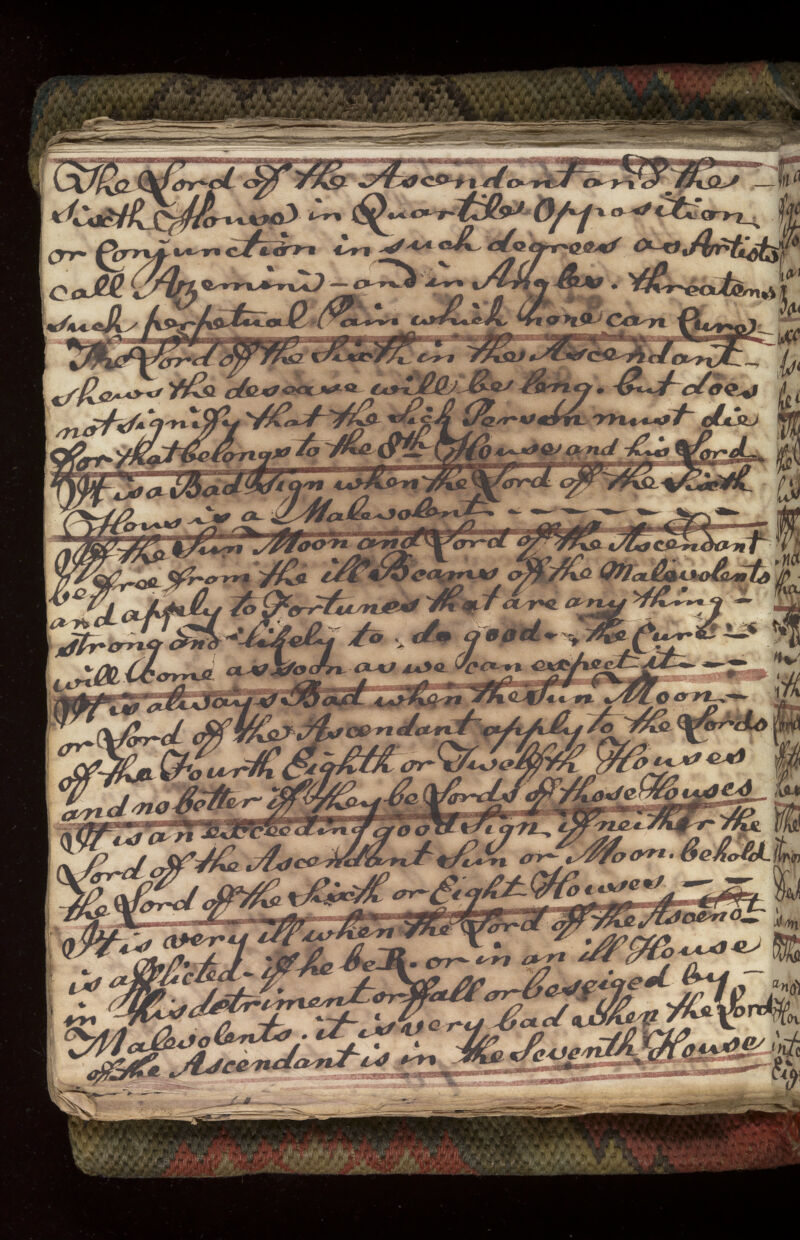 The Lord of the Ascendant and the -
Sixth House in Quartile Opposition
or Conjunction in such degrees as Artists
call Azemini - and in Angles. threatens
such perpetual Pain which none can Cure -
The Lord of the Sixth in the Ascendant -
shews the desease will be long. but does
not signify that the Sick Person must die
for that belongs to the 8th House and his Lord
It is a Bad Sign when the Lord of the Sixth
Hous is a Malevolent - - - - - - -
If the Sun Moon and Lord of the Ascendant
be free from the ill Beams of the Malevolents
and apply to Fortunes that are any thing -
strong and likely to do good - the Cure -
will Come as soon as we can expect it - - -
It is always Bad when the Sun Moon -
or Lord of the Ascendant apply to the Lords
of the Fourth Eighth or Twelfth Houses
and no better if they be Lords of those Houses
It is an exceeding good Sign if neither the
Lord of the Ascendant Sun or Moon. behold
the Lord of the Sixth or Eight Houses - -
It is very ill when the Lord of the Ascendt
is afflicted - if he be R. or in an ill House
in his detriment or ffall or beseiged by -
Malevolents. it is very bad when the Lord
of the Ascendant is in the Seventh House